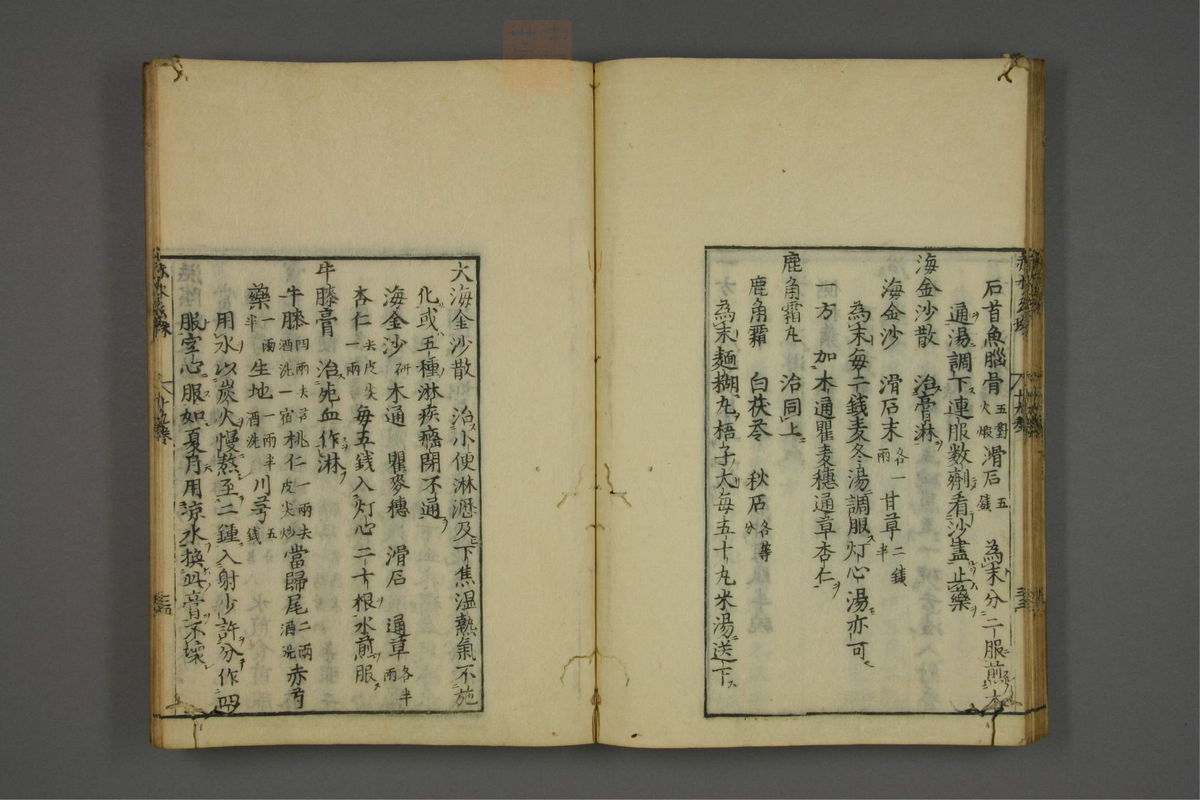 石首魚腦骨五對火煅滑石五錢為末分二服煎木
通湯調下連服数劑看沙盡止藥
海金沙散 治膏淋
海金沙 滑石末各一兩甘草二錢半
為末每二錢麦冬湯調服灯心湯亦可
一方 加木通瞿麦穗通草杏仁
鹿角霜丸 治同上
鹿角霜 白茯苓 秋石各等分
為末麺糊丸梧子大每五十丸米湯送下
大海金沙散 治小便淋瀝及下焦温熱氣不施
化或五種淋疾癃閉不通
海金沙研木通 瞿麥穗 滑石 通草各半兩
杏仁去皮尖一兩每五錢入灯心二十根水煎服
牛膝膏 治死血作淋
牛膝四兩去芦酒洗一宿桃仁一兩去皮尖炒當歸尾二兩酒洗赤芍
藥一兩半生地一兩半酒洗川芎五錢
用水以炭火慢熬至二鍾入射少許分作四
服空心服如夏月用凉水換此膏不壞